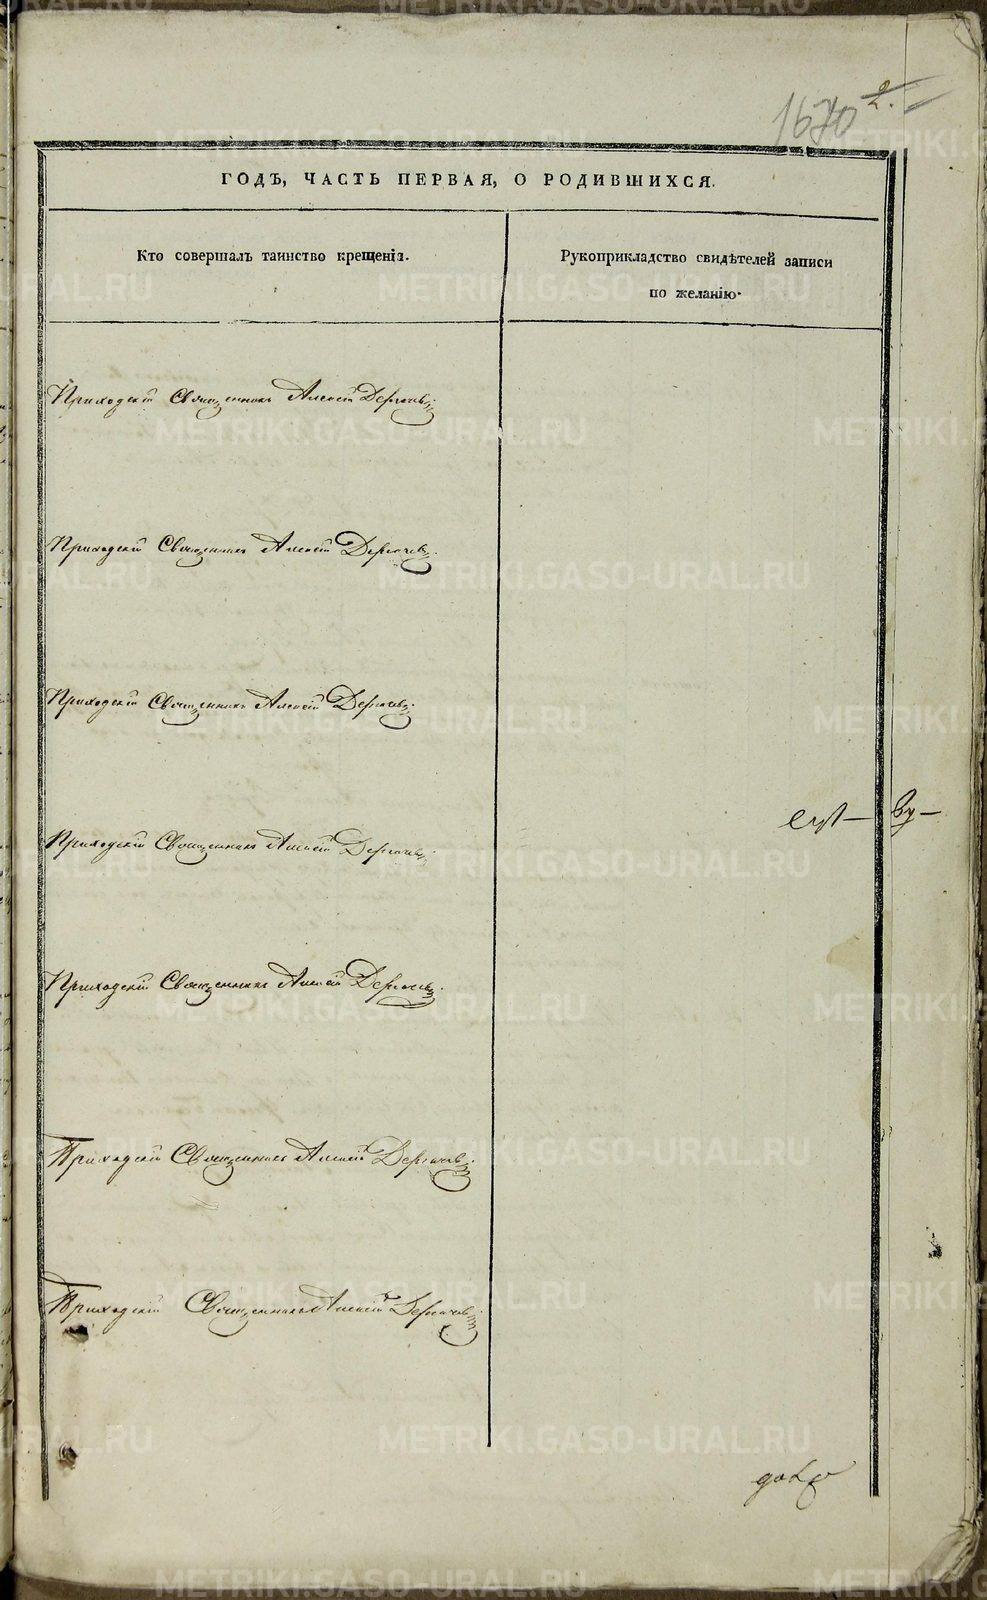 1670 2.
ГОДЪ, ЧАСТЬ ПЕРВАЯ, О РОДИВШИХСЯ.
Кто совершалъ таинство крещенія.
Рукоприкладство свидѣтелей записи
по желанію.
Приходскій Священникъ Алексій Дергачевъ.
Приходскій Священникъ Алексій Дергачевъ.
Приходскій Священникъ Алексій Дергачевъ.
Приходскій Священникъ Алексій Дергачевъ.
Приходскій Священникъ Алексій Дергачевъ.
Приходскій Священникъ Алексій Дергачевъ.
Приходскій Священникъ Алексій Дергачевъ.
METRIKI.GASO-URAL.RU